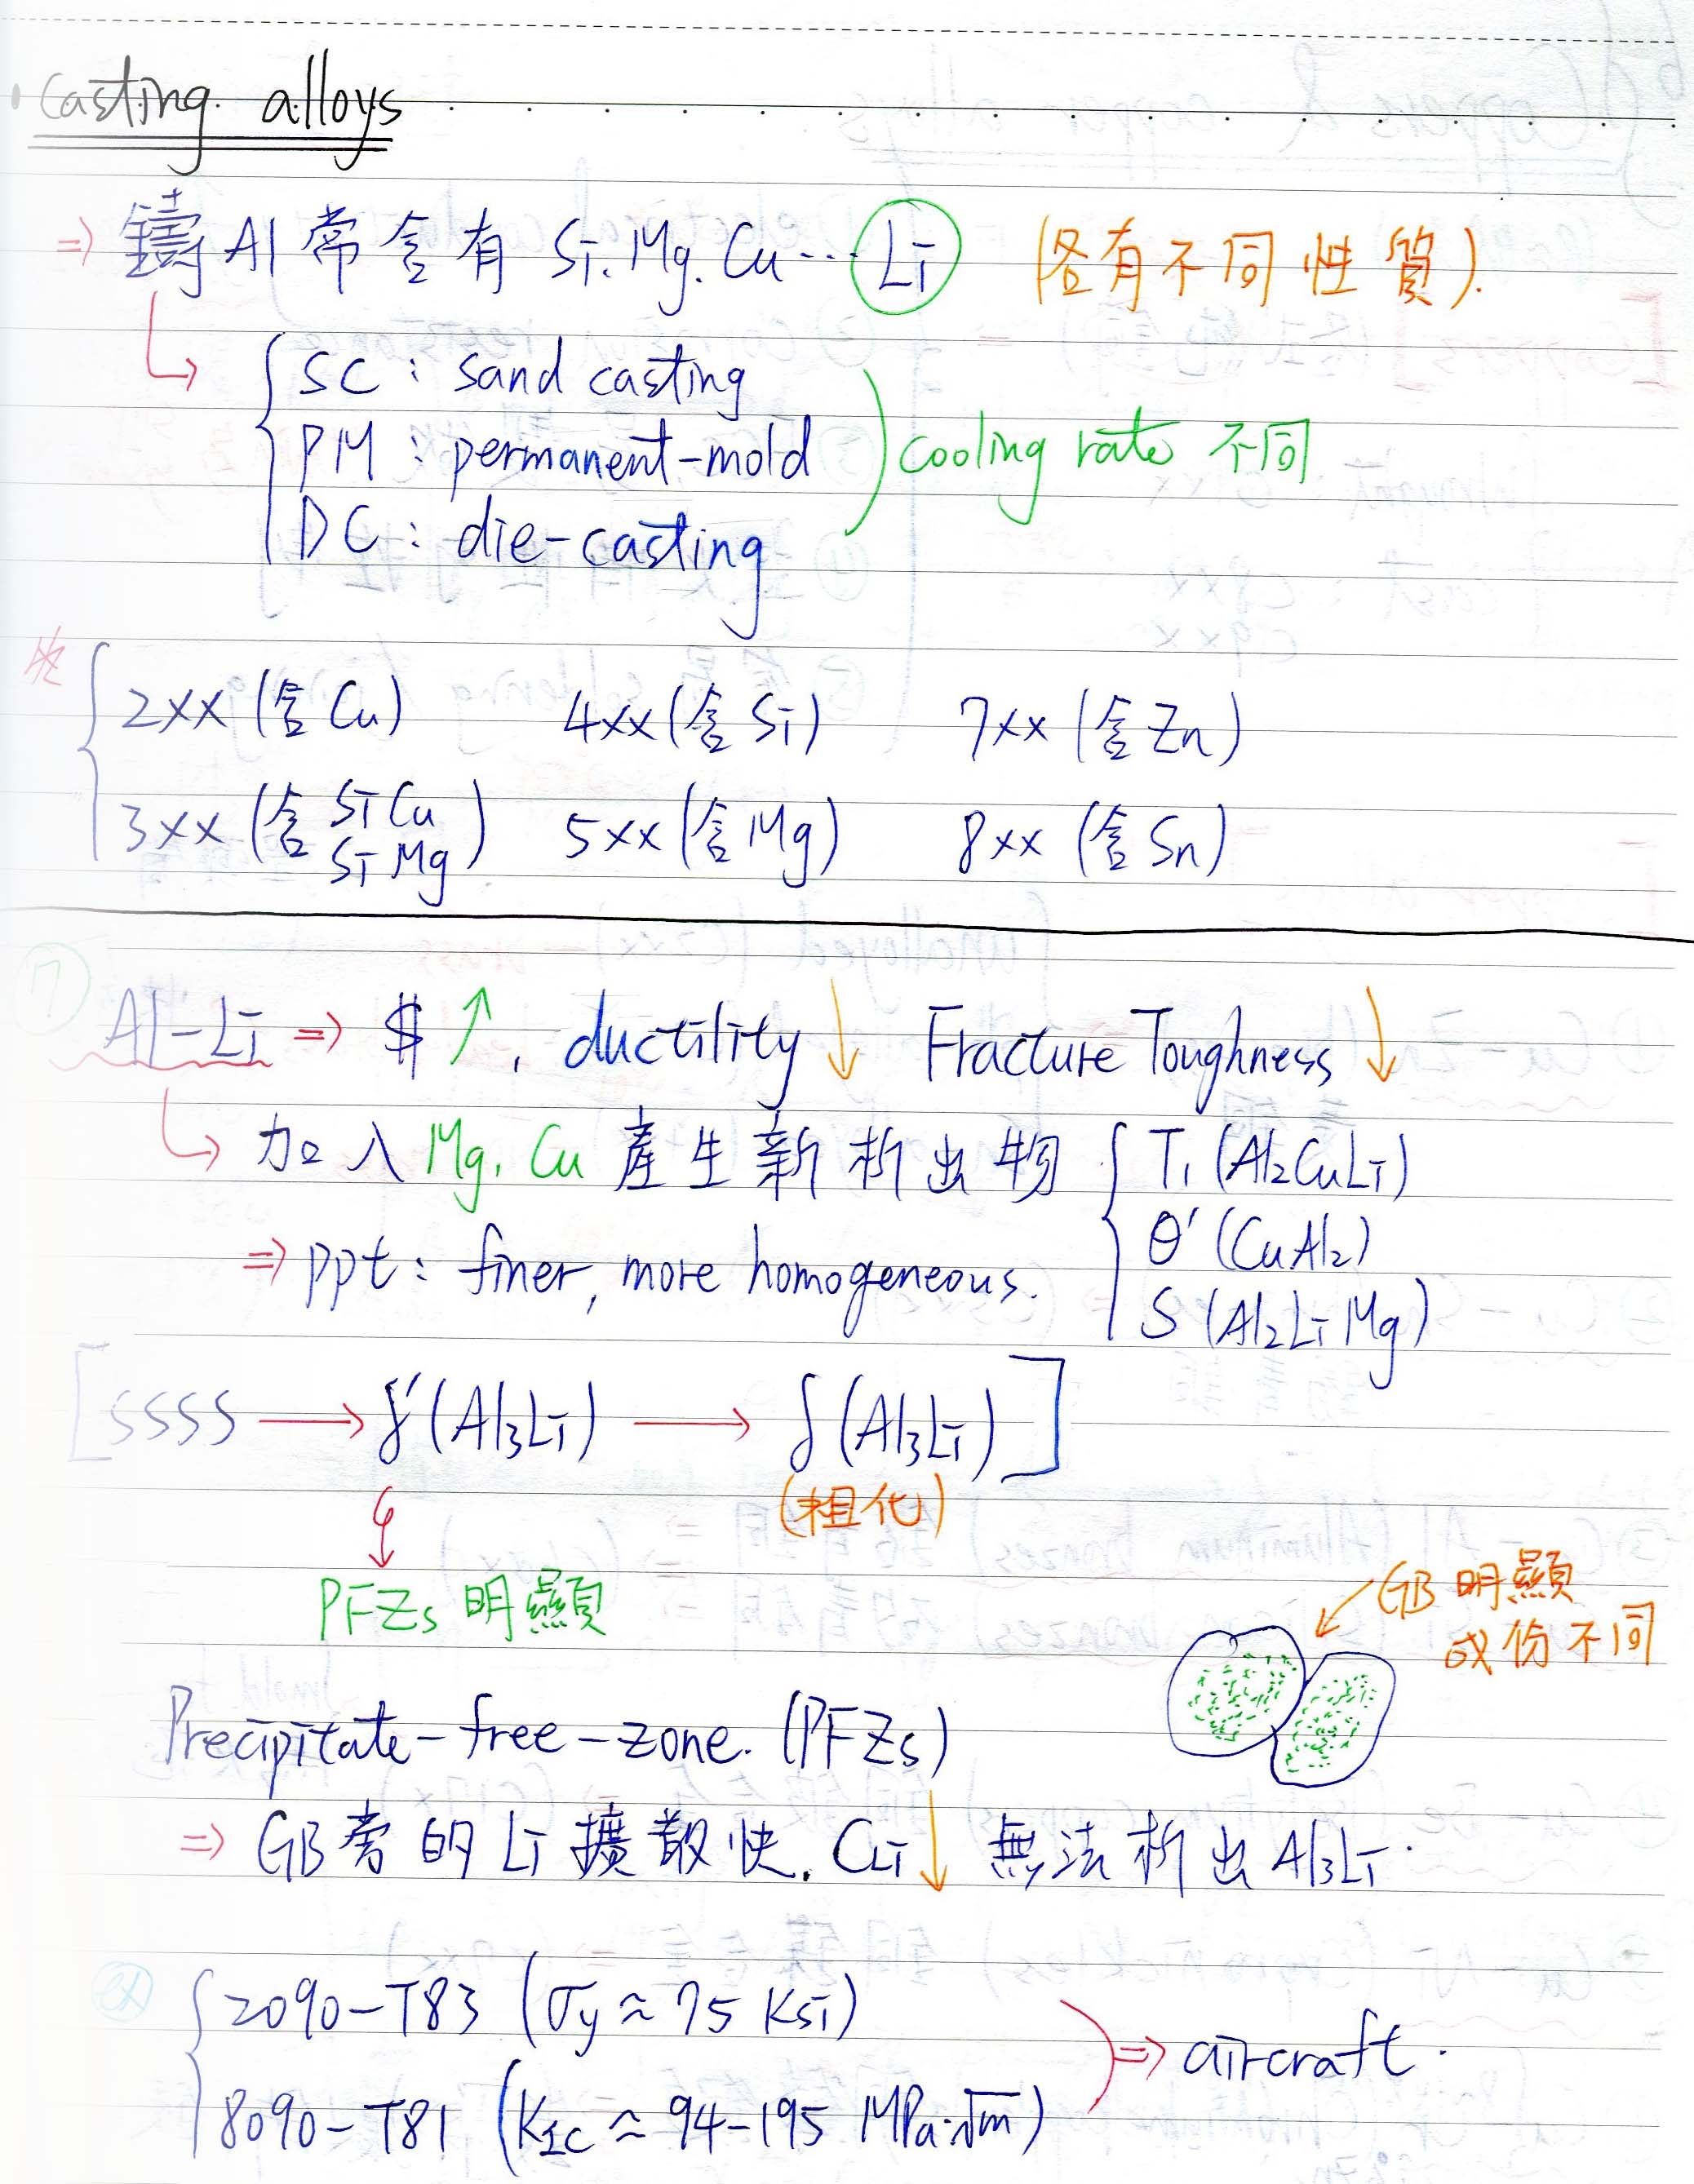 casting alloys
⇒ 鑄Al常含有 Si. Mg. Cu… Li (各有不同性質).
↳ SC : sand casting
PM : permanent-mold
DC : die-casting
cooling rate 不同
2xx (含Cu) 4xx (含Si) 7xx (含Zn)
3xx (含 SiCu SiMg) 5xx (含Mg) 8xx (含Sn)
Al-Li ⇒ $ ↑, ductility ↓ Fracture Toughness ↓
↳ 加入 Mg, Cu 產生新析出物 T₁ (Al₂CuLi)
θ' (CuAl₂)
⇒ ppt : finer, more homogeneous.
S (Al₂LiMg)
[SSSS → δ' (Al₃Li) → δ (Al₃Li)]
(粗化)
PFZs 明顯
GB 明顯
成份不同
Precipitate-free-zone. (PFZs)
⇒ GB旁的Li擴散快. CLi ↓ 無法析出Al₃Li.
2090-T83 (σy ≈ 75 Ksi)
⇒ aircraft.
8090-T81 (KIC ≈ 94-195 MPa·√m)